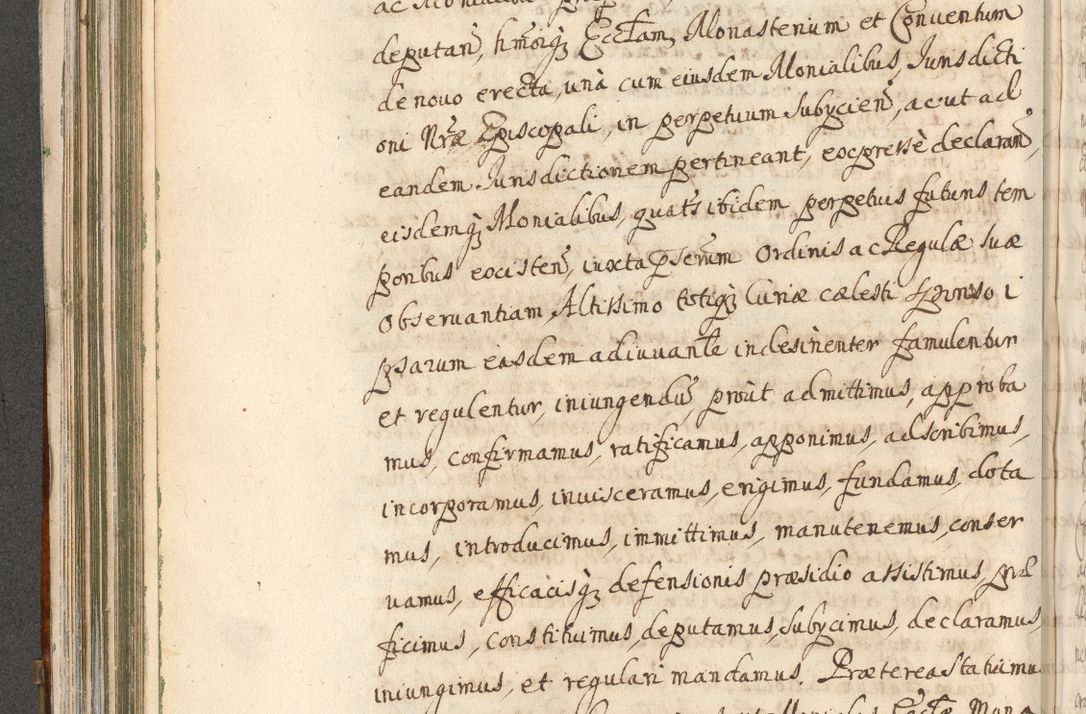 deputan̄, hm̄oiq₃ Eccl̄am, Monasterium et Conuentum
de nouo erecta, unà cum eiusdem Monialibus, Jurisdicti
oni Nr̄æ Episcopali, in perpetuum subycien̄, ac ut ad
eandem Jurisdictionem pertineant, expressè declaran̄,
eisdemq₃ Monialibus, quat̄s ibidem perpetuis futuris tem
poribus existen̄, iuxta pn̄sserūm Ordinis ac Regulæ suæ
Obseruantiam, Altissimo totiq₃ Curiæ cælesti sponso i
psarum easdem adiuuante indesinenter famulentur
et regulentur, iniungendū, proùt admittimus, approba
mus, confirmamus, ratificamus, apponimus, adscribimus,
incorporamus, inuisceramus, erigimus, fundamus, dota
mus, introducimus, immittimus, manutenemus, conser
uamus, efficacisq₃ defensionis præsidio assistimus, præ
ficimus, constituimus, deputamus, subycimus, declaramus,
iniungimus, et regulari mandamus. Præterea statuimus